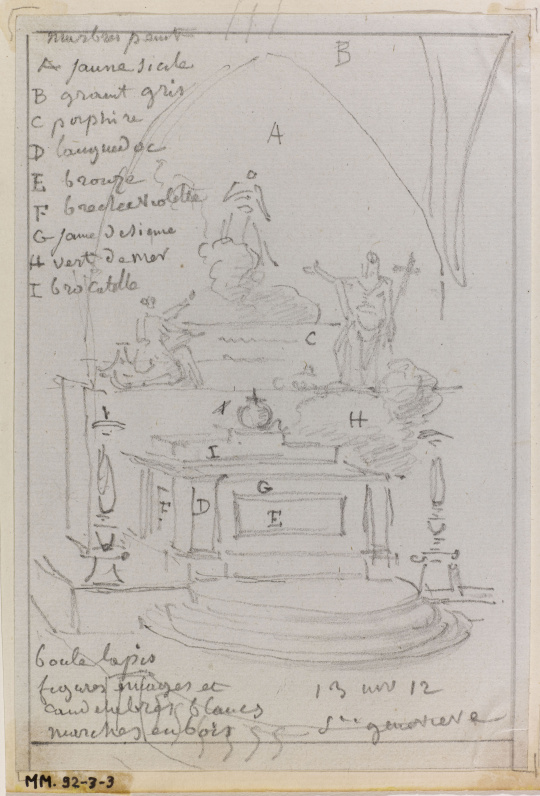 marbres peint
A jaune sicile
B granit gris
C porphire
D languedoc
E bronze
F breche violette
G jaune de sienne
H vert de mer
I brocatelle
B
A
C
H
I
G
F.
D
E
boule lapis
figures nuages et
candelabres blancs
marches en bois
13 nov 12
Ste genevieve
MM. 92-3-3